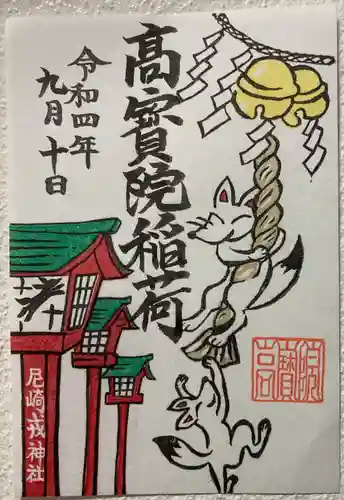 高寳院稲荷
令和四年
九月十日
尼崎戎神社
院寳高